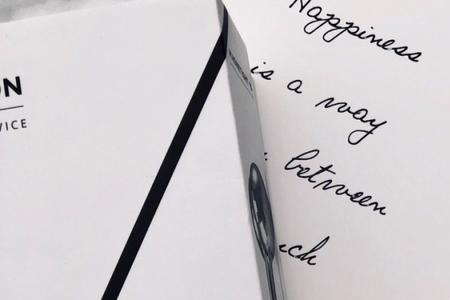 ON
VICE
Happiness
is a way
between
ich